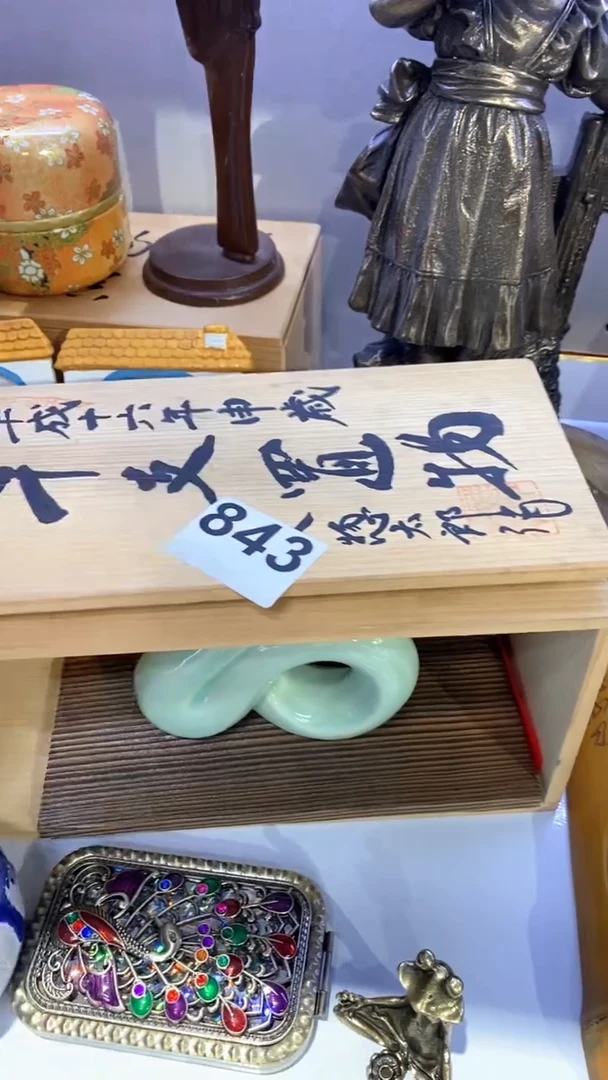 平成十六年申歳
干支置物
太郎
843